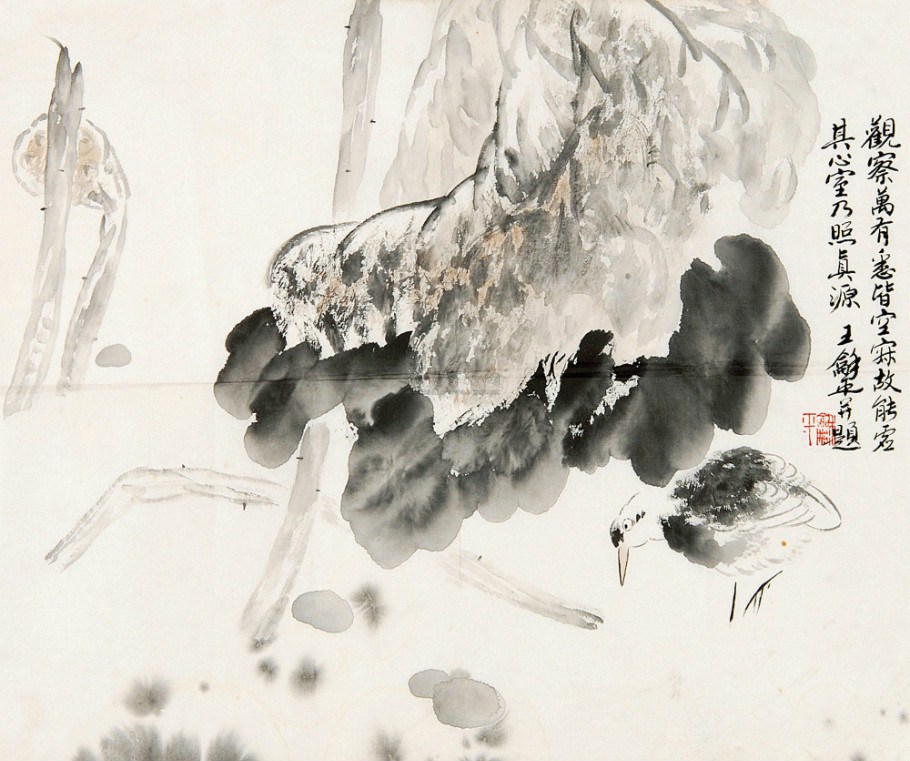 觀察萬有悉皆空寂故能虛
其心室乃照真源 王龢平并題